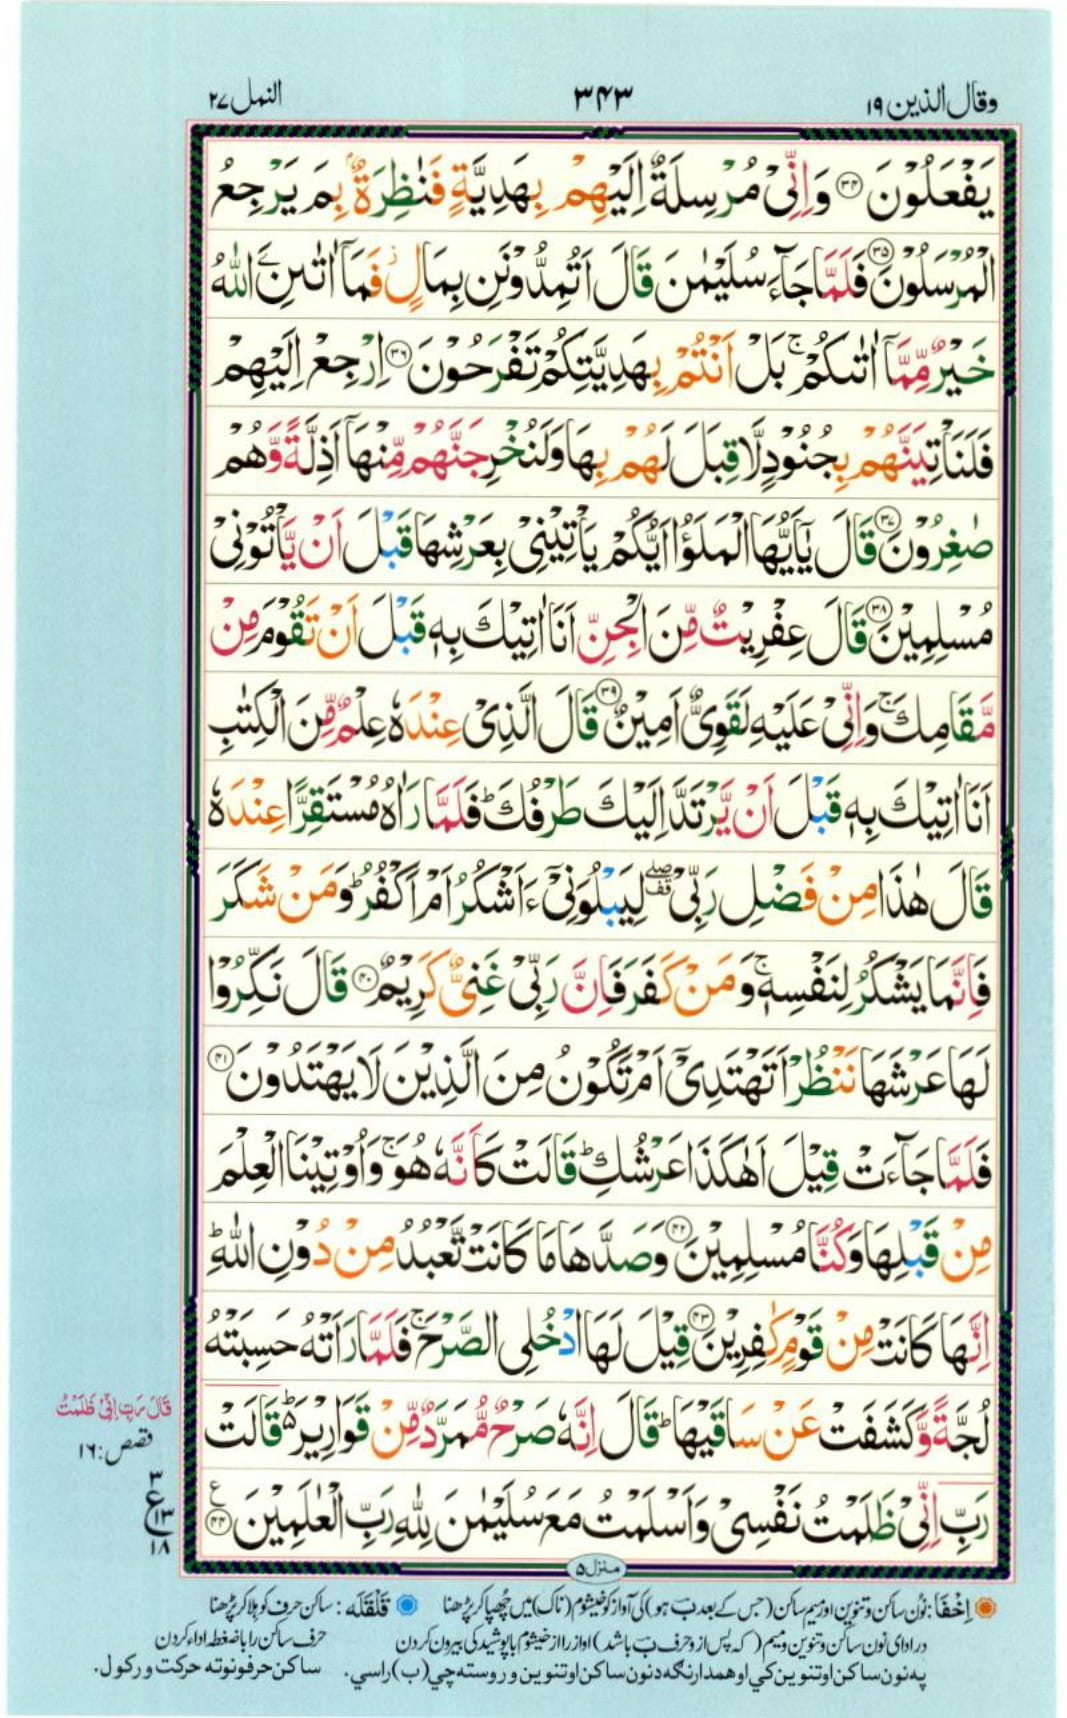 وقال الذین ۱۹
۳۴۳
النمل ۲۷
یَفْعَلُوْنَ ۳۴ وَاِنِّیْ مُرْسِلَةٌ اِلَیْهِمْ بِهَدِیَّةٍ فَنٰظِرَةٌۢ بِمَ یَرْجِعُ
الْمُرْسَلُوْنَ ۳۵ فَلَمَّا جَآءَ سُلَیْمٰنَ قَالَ اَتُمِدُّوْنَنِ بِمَالٍ ز فَمَاۤ اٰتٰىنِ یَ اللّٰهُ
خَیْرٌ مِّمَّاۤ اٰتٰىكُمْ ۚ بَلْ اَنْتُمْ بِهَدِیَّتِكُمْ تَفْرَحُوْنَ ۳۶ اِرْجِعْ اِلَیْهِمْ
فَلَنَاْتِیَنَّهُمْ بِجُنُوْدٍ لَّا قِبَلَ لَهُمْ بِهَا وَلَنُخْرِجَنَّهُمْ مِّنْهَاۤ اَذِلَّةً وَّهُمْ
صٰغِرُوْنَ ۳۷ قَالَ یٰۤاَیُّهَا الْمَلَؤُا اَیُّكُمْ یَاْتِیْنِیْ بِعَرْشِهَا قَبْلَ اَنْ یَّاْتُوْنِیْ
مُسْلِمِیْنَ ۳۸ قَالَ عِفْرِیْتٌ مِّنَ الْجِنِّ اَنَا اٰتِیْكَ بِهٖ قَبْلَ اَنْ تَقُوْمَ مِنْ
مَّقَامِكَ ۚ وَاِنِّیْ عَلَیْهِ لَقَوِیٌّ اَمِیْنٌ ۳۹ قَالَ الَّذِیْ عِنْدَهٗ عِلْمٌ مِّنَ الْكِتٰبِ
اَنَا اٰتِیْكَ بِهٖ قَبْلَ اَنْ یَّرْتَدَّ اِلَیْكَ طَرْفُكَ ؕ فَلَمَّا رَاٰهُ مُسْتَقِرًّا عِنْدَهٗ
قَالَ هٰذَا مِنْ فَضْلِ رَبِّیْ ۖ قف لِیَبْلُوَنِیْۤ ءَاَشْكُرُ اَمْ اَكْفُرُ ؕ وَمَنْ شَكَرَ
فَاِنَّمَا یَشْكُرُ لِنَفْسِهٖ ۚ وَمَنْ كَفَرَ فَاِنَّ رَبِّیْ غَنِیٌّ كَرِیْمٌ ۴۰ قَالَ نَكِّرُوْا
لَهَا عَرْشَهَا نَنْظُرْ اَتَهْتَدِیْۤ اَمْ تَكُوْنُ مِنَ الَّذِیْنَ لَا یَهْتَدُوْنَ ۴۱
فَلَمَّا جَآءَتْ قِیْلَ اَهٰكَذَا عَرْشُكِ ؕ قَالَتْ كَاَنَّهٗ هُوَ ۚ وَاُوْتِیْنَا الْعِلْمَ
مِنْ قَبْلِهَا وَكُنَّا مُسْلِمِیْنَ ۴۲ وَصَدَّهَا مَا كَانَتْ تَّعْبُدُ مِنْ دُوْنِ اللّٰهِ ؕ
اِنَّهَا كَانَتْ مِنْ قَوْمٍ كٰفِرِیْنَ ۴۳ قِیْلَ لَهَا ادْخُلِی الصَّرْحَ ۚ فَلَمَّا رَاَتْهُ حَسِبَتْهُ
لُجَّةً وَّكَشَفَتْ عَنْ سَاقَیْهَا ؕ قَالَ اِنَّهٗ صَرْحٌ مُّمَرَّدٌ مِّنْ قَوَارِیْرَ ؕ۵ قَالَتْ
رَبِّ اِنِّیْ ظَلَمْتُ نَفْسِیْ وَاَسْلَمْتُ مَعَ سُلَیْمٰنَ لِلّٰهِ رَبِّ الْعٰلَمِیْنَ ۴۴ ع
قَالَ رَبِّ اِنِّیْ ظَلَمْتُ
قصص: ۱۶
۳
ع
۱۳
۱۸
منزل ۵
اِخْفَا: نُون ساکن و تنوین اور میم ساکن (جس کے بعد ب ہو) کی آواز کو خیشوم (ناک) میں چھپا کر پڑھنا
قَلْقَلَه: ساکن حرف کو ہلا کر پڑھنا
در ادای نون ساکن و تنوین و میم (که پس از و حرف ب باشد) آواز را از خیشوم با پوشیدگی بیرون کردن
حرف ساکن را با ضغطه اداء کردن
په نون ساکن او تنوین کي او همدارنګه د نون ساکن او تنوین وروسته چي (ب) راسي.
ساکن حرفونو ته حرکت ورکول.